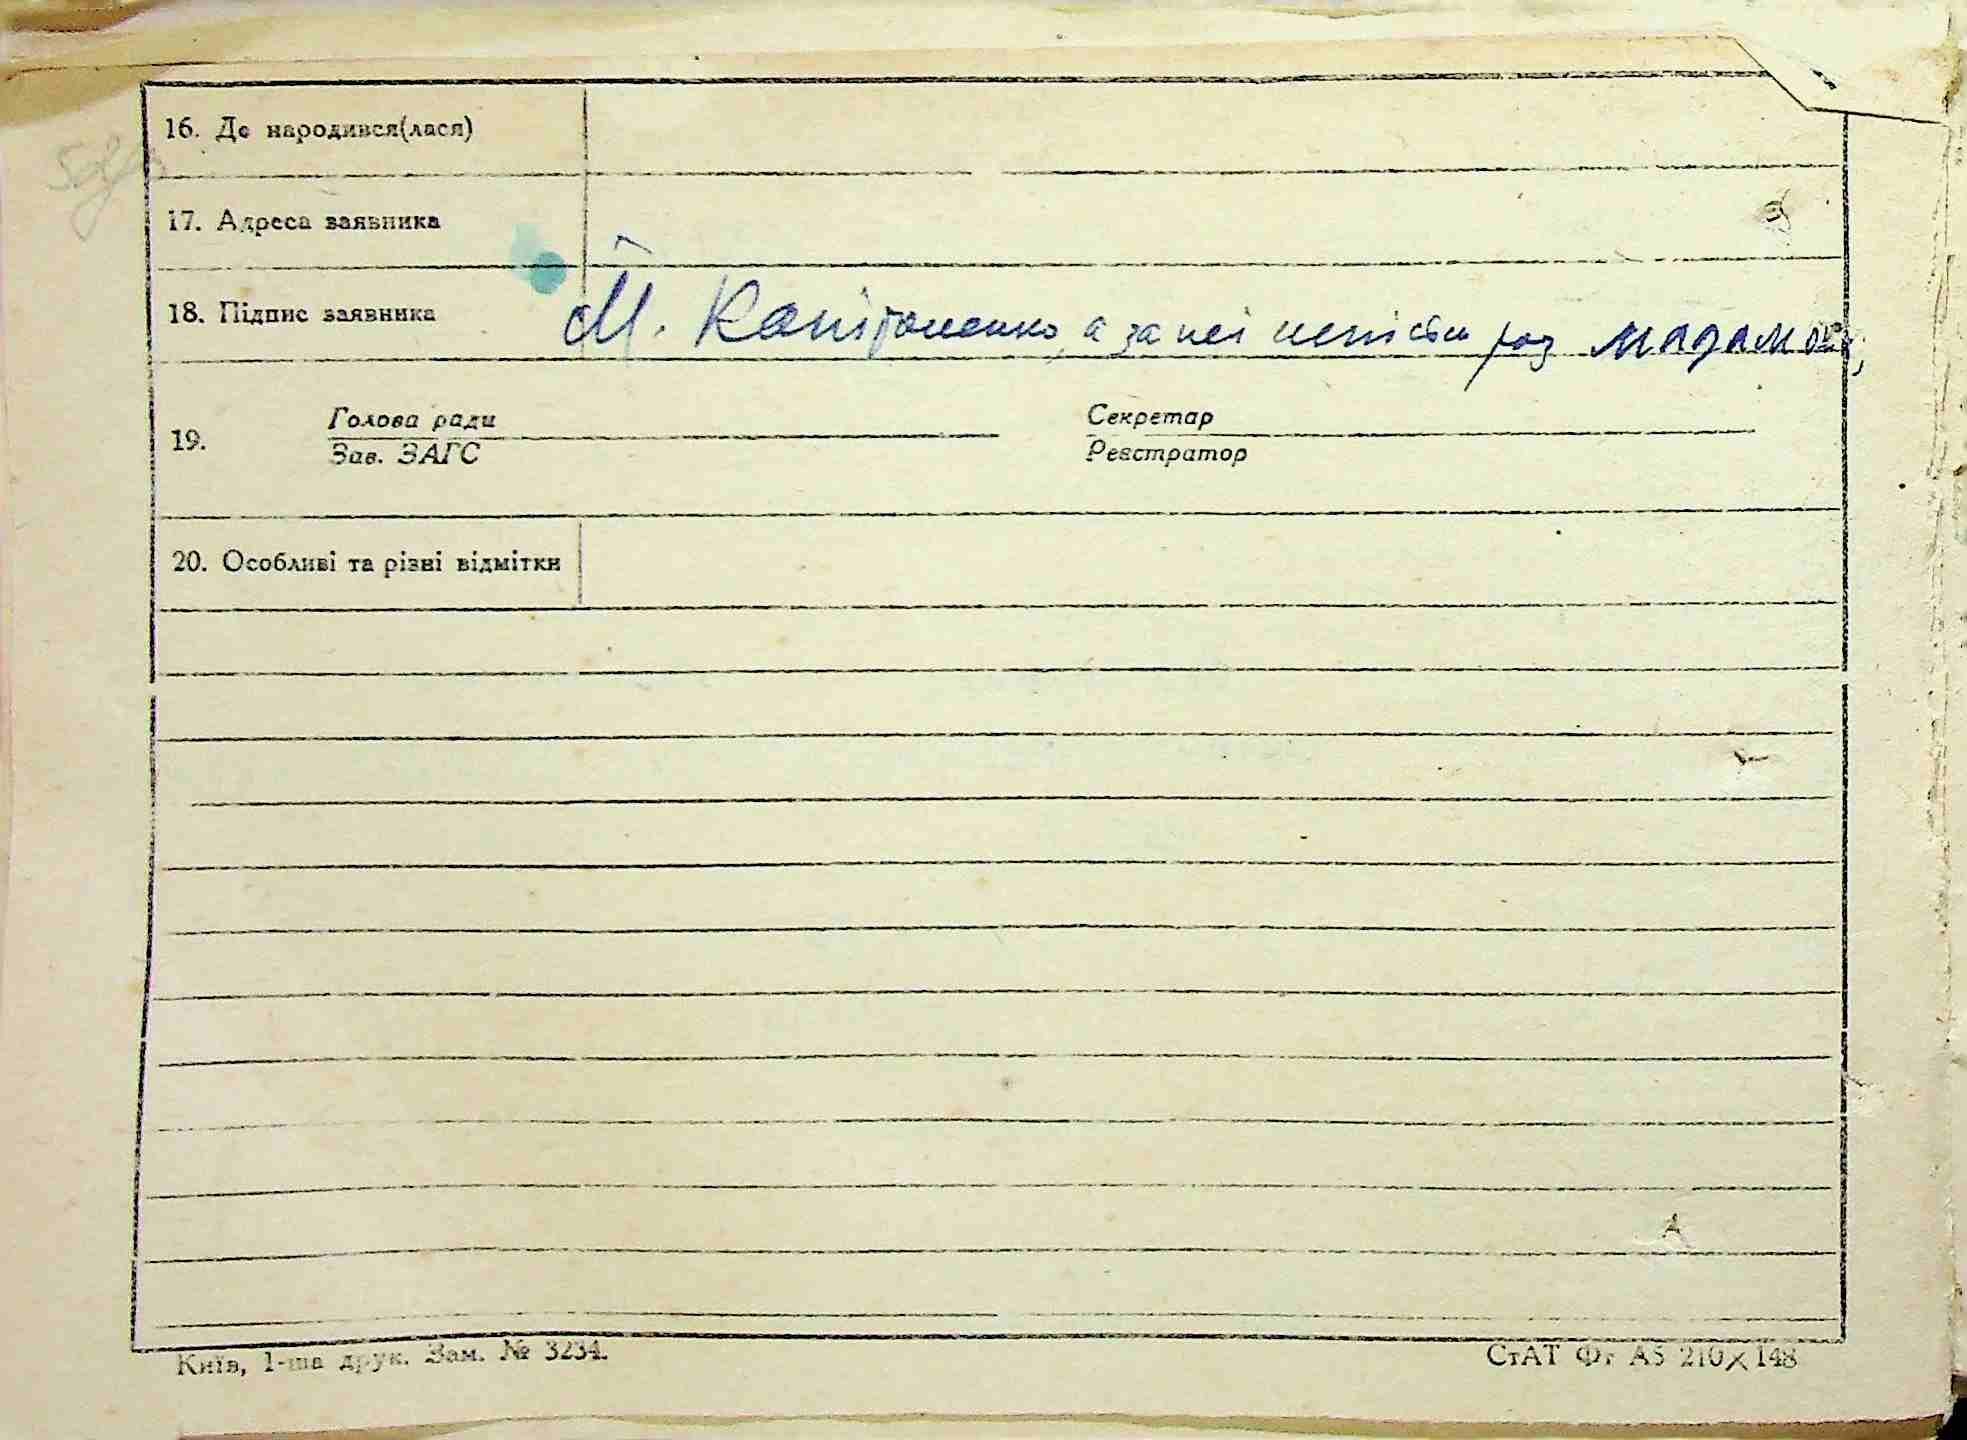 16. Де народився(лася)
17. Адреса заявника
18. Підпис заявника М. Капітоненко, а за неї
19. Голова ради Секретар
Зав. ЗАГС Реєстратор
20. Особливі та різні відмітки
Київ, 1-ша друк. Зам. № 3234. СтАТ Фг А5 210×148